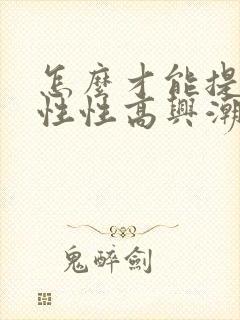 怎麼才能提
性性高興潮
鬼醉劍